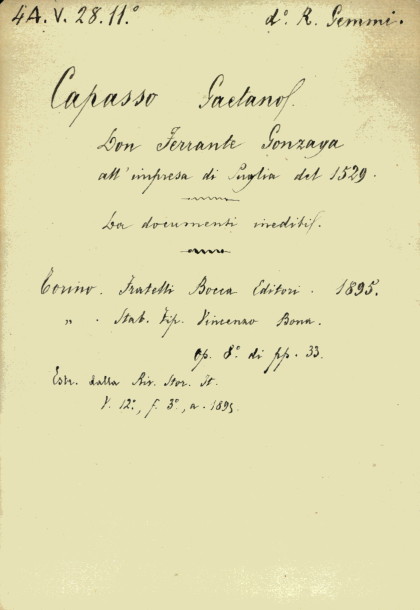 4A. V. 28. 11.° d°. R. Gemmi.
Capasso Gaetano.
Don Ferrante Gonzaga
all'impresa di Puglia del 1529.
Da documenti inediti.
Torino. Fratelli Bocca Editori. 1895.
" . Stab. Tip. Vincenzo Bona.
op. 8° di pp. 33.
Estr. dalla Riv. Stor. It.
V. 12°, f. 3°, a. 1895.